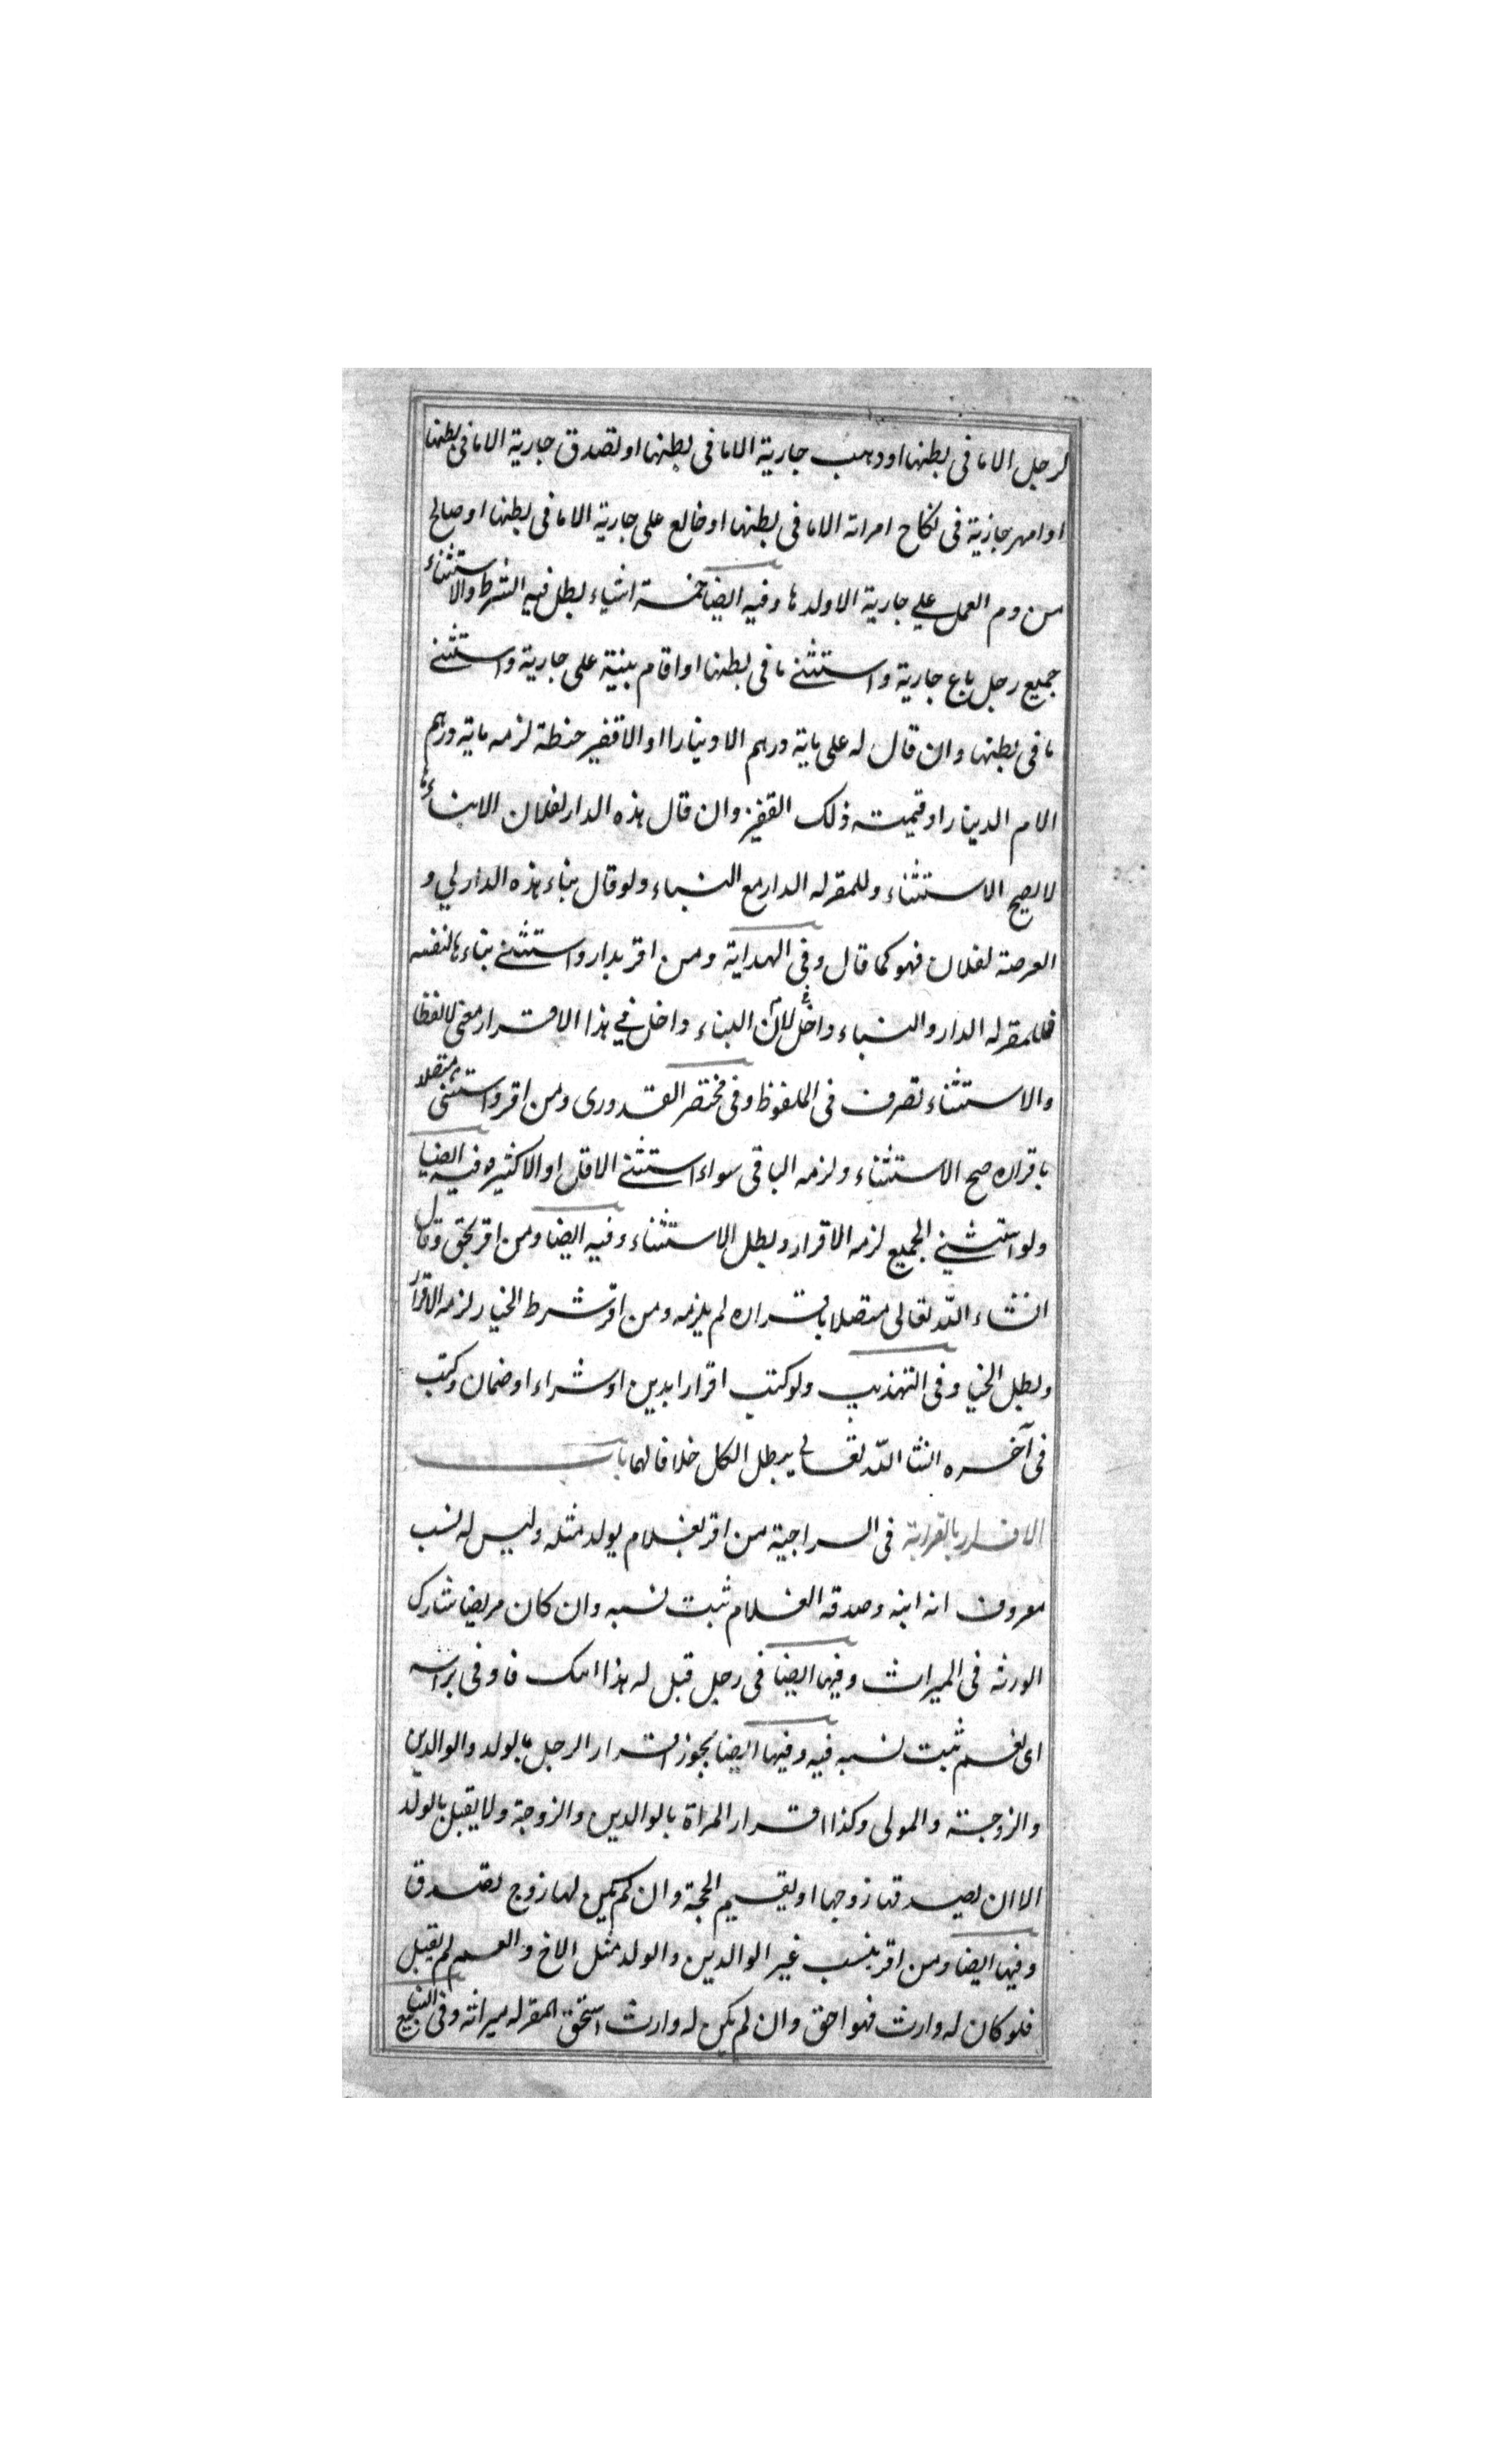 لرجل الا ما فى بطنها او وهب جارية الا ما فى بطنها او تصدق جارية الا ما فى بطنها
او امهر جارية فى نكاح امراته الا ما فى بطنها او خالع على جارية الا ما فى بطنها او صالح
من دم العمد على جارية الا ولدها وفيه ايضا خمسة اشياء يبطل فيه الشرط والاستثناء
جميع رجل باع جارية واستثنى ما فى بطنها او اقام بينة على جارية واستثنى
ما فى بطنها وان قال له على ماية درهم الا دينارا او الا قفيز حنطة لزمه ماية درهم
الا الدينار او قيمته ذلك القفيز وان قال هذه الدار لفلان الا بناءها
لا يصح الاستثناء وللمقر له الدار مع البناء ولو قال بناء هذه الدار لي و
العرصة لفلان فهو كما قال وفى الهداية ومن اقر بدار واستثنى بناءها لنفسه
فللمقر له الدار والبناء لان البناء داخل في هذا الاقرار معنى لا لفظا
والاستثناء تصرف فى الملفوظ وفى مختصر القدورى ومن اقر واستثنى متصلا
باقراره صح الاستثناء ولزمه الباقى سواء استثنى الاقل او الاكثر وفيه ايضا
ولو استثنى الجميع لزمه الاقرار وبطل الاستثناء وفيه ايضا ومن اقر بحق وقال
انشاء الله تعالى متصلا باقراره لم يلزمه ومن اقر شرط الخيار لزمه الاقرار
وبطل الخيا وفى التهذيب ولو كتب اقرارا بدين او شراء او ضمان وكتب
فى آخره انشا الله تعالى يبطل الكل خلافا لهما باب
الاقرار بالقرابة فى السراجية من اقر بغلام يولد مثله وليس له نسب
معروف انه ابنه وصدقه الغلام ثبت نسبه وان كان مريضا شارك
الورثه فى الميراث وفيها ايضا فى رجل قيل له هذا ابنك فاوفى براسه
اى نعم ثبت نسبه فيه وفيها ايضا يجوز اقرار الرجل بالولد والوالدين
والزوجة والمولى وكذا اقرار المراة بالوالدين والزوجة ولا يقبل بالولد
الا ان يصدقها زوجها او يقيم الحجة وان لم يكن لها زوج تصدق
وفيها ايضا ومن اقر بنسب غير الوالدين والولد مثل الاخ والعم لم يقبل
فلو كان له وارث فهو احق وان لم يكن له وارث استحق المقر له ميراثه وفى الينابيع